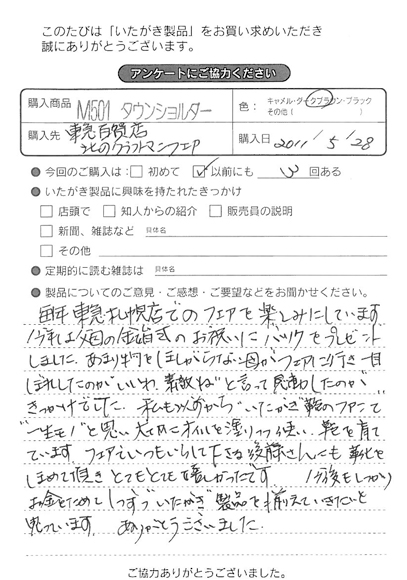 このたびは「いたがき製品」をお買い求めいただき
誠にありがとうございます。
アンケートにご協力ください
購入商品 M501 タウンショルダー
色： キャメル・ダークブラウン・ブラック
その他（
購入先 東急百貨店
北のクラフトマンフェア
購入日 2011/5/28
● 今回のご購入は： □ 初めて ☑ 以前にも 3 回ある
● いたがき製品に興味を持たれたきっかけ
□ 店頭で □ 知人からの紹介 □ 販売員の説明
□ 新聞、雑誌など 具体名
□ その他
● 定期的に読む雑誌は 具体名
● 製品についてのご意見・ご感想・ご要望などをお聞かせください。
毎年東急札幌店でのフェアを楽しみにしています
今年は父母の金婚式のお祝いにバックをプレゼント
しました。あまり物をほしがらない母がフェアに行き一目
ぼれしたのが"いいわ、素敵ね"と言って感動したのが
きっかけでした。私も以前から"いたがき"鞄のファンで
"一生モノ"と思い大切にオイルを塗りつつ使い、鞄を育て
ています。フェアでいつもいらして下さる後藤さんにも
しめて頂きとてもとても嬉しかったです。今後もしっかり
お金をためましてずっと"いたがき"製品を揃えていきたいと
思っています。ありがとうございました。
ご協力ありがとうございました。